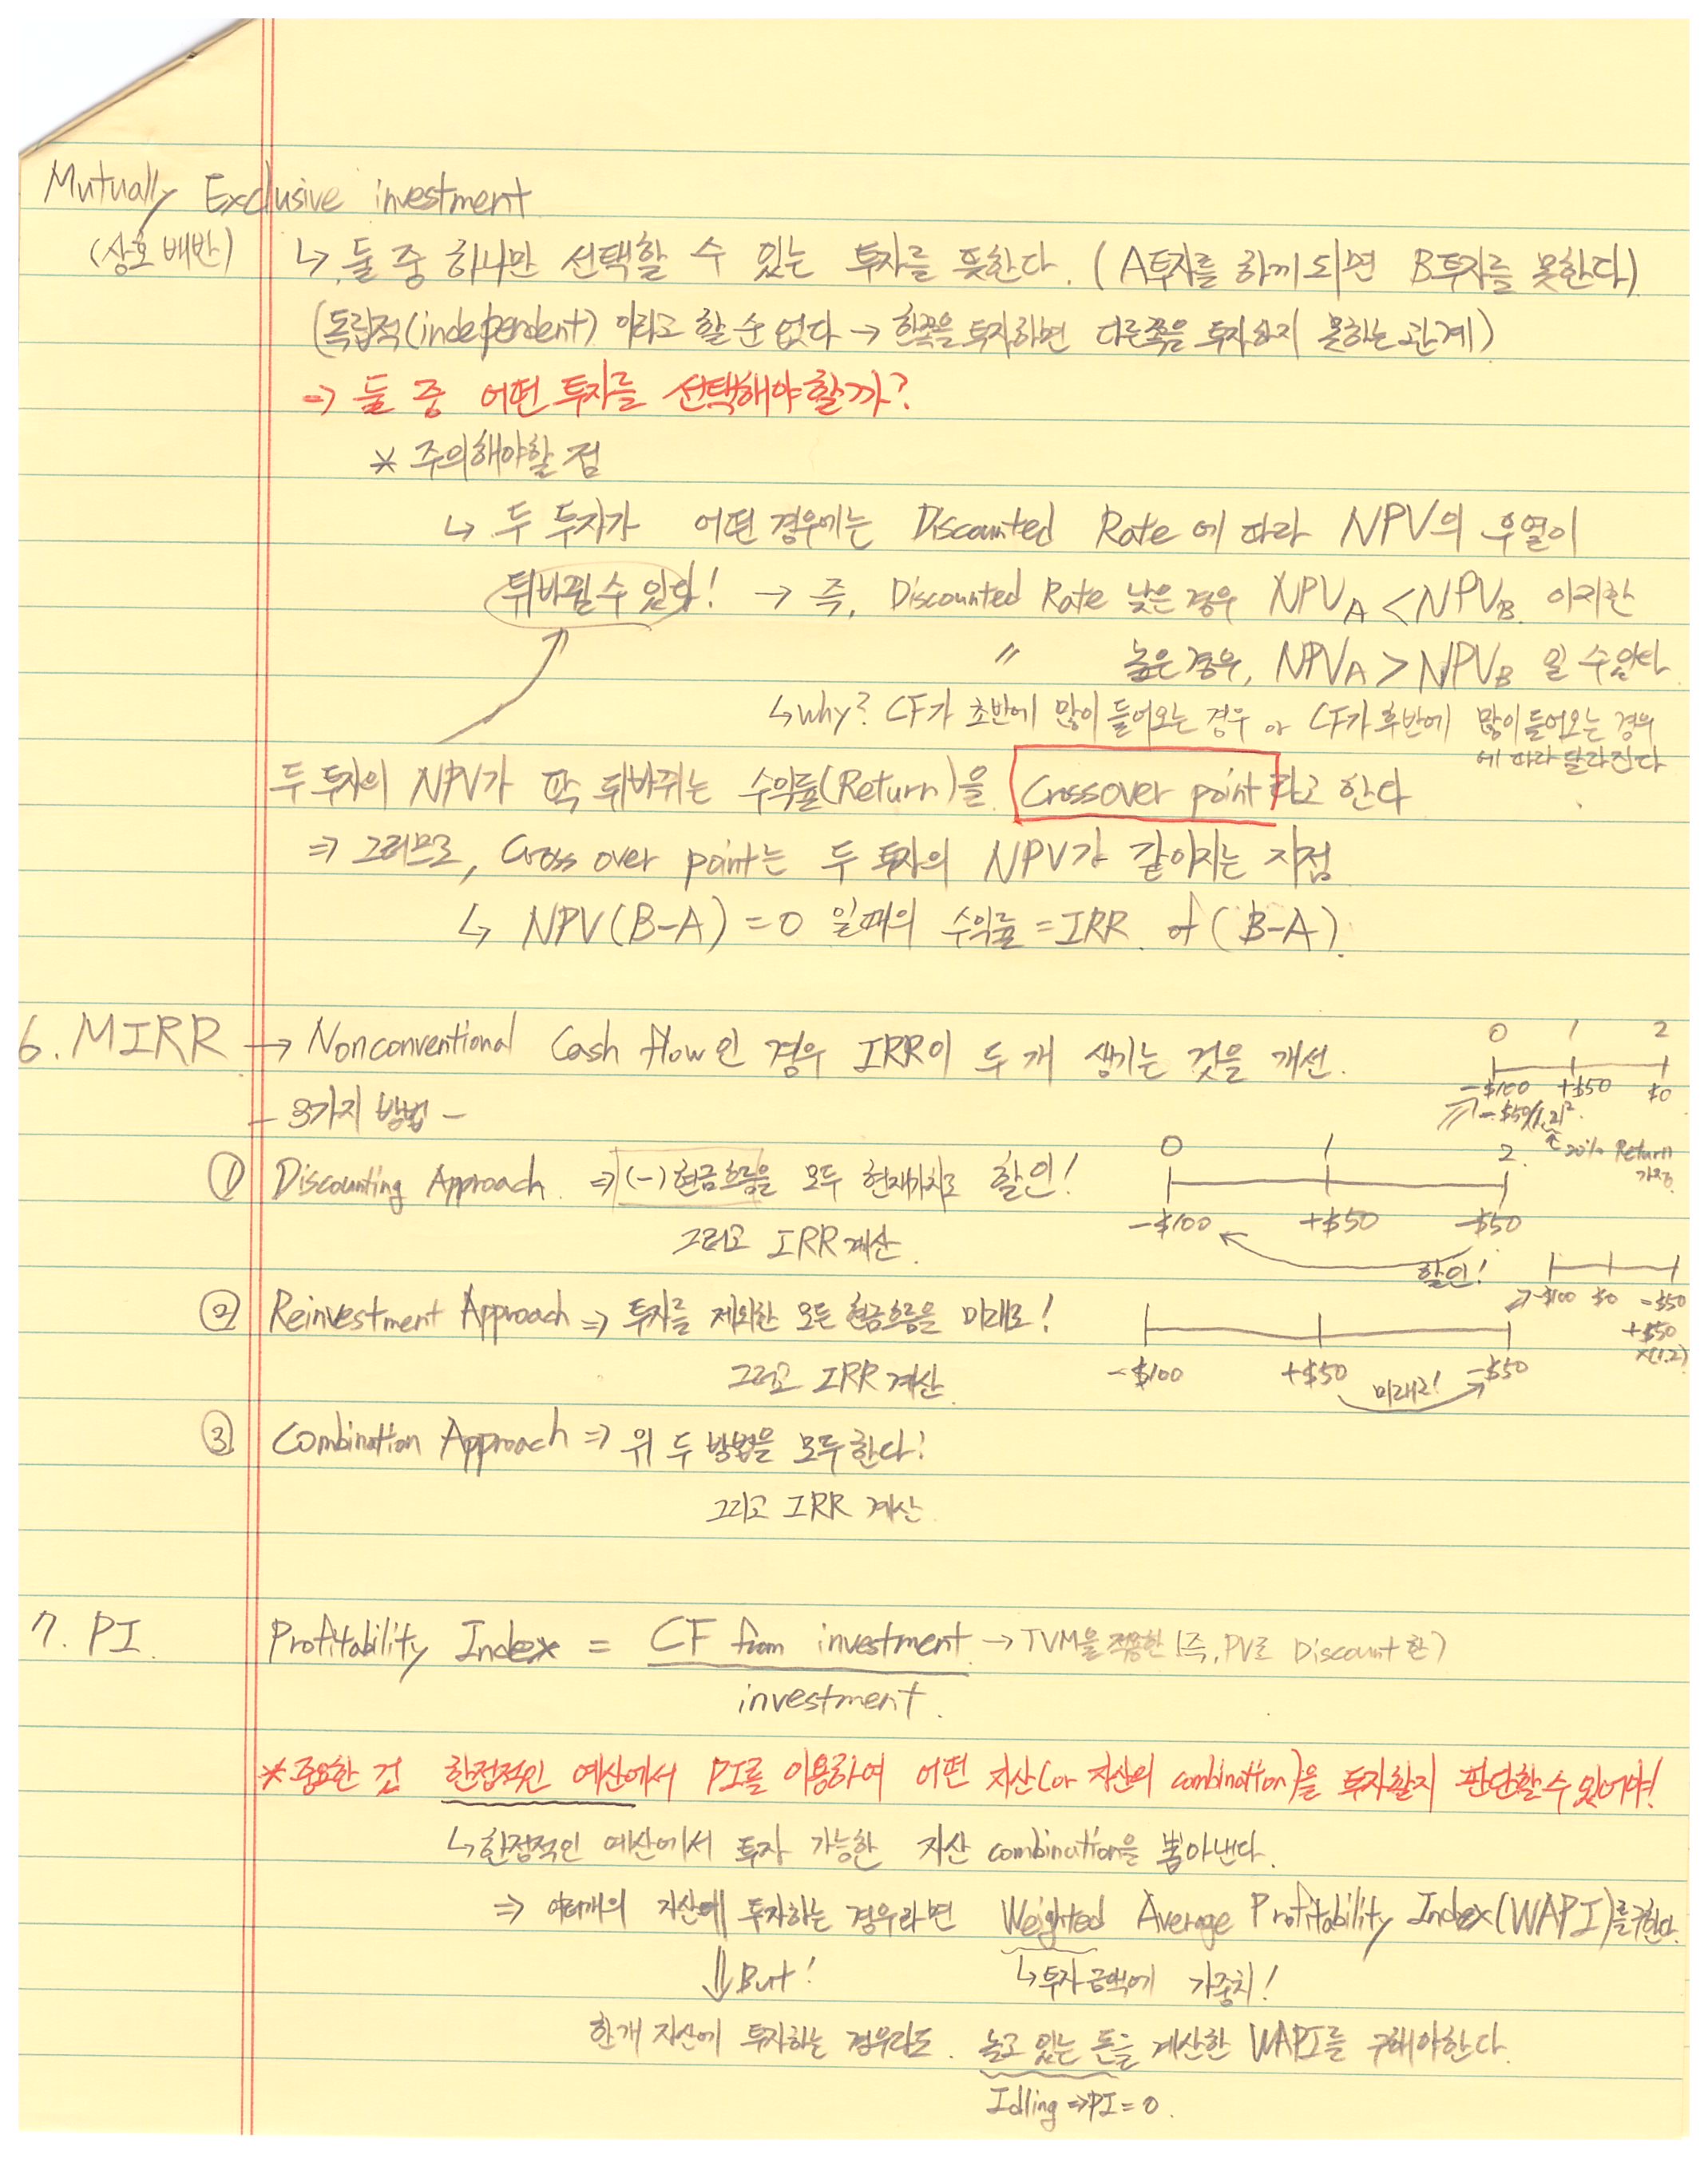 Mutually Exclusive investment
(상호 배반) ↳ 둘 중 하나만 선택할 수 있는 투자를 뜻한다. (A투자를 하게되면 B투자를 못한다)
(독립적(independent) 이라고 할 순 없다 → 한쪽을 투자하면 다른쪽을 투자하지 못하는 관계)
→ 둘 중 어떤 투자를 선택해야 할까?
* 주의해야할 점
↳ 두 투자가 어떤 경우에는 Discounted Rate에 따라 NPV의 우열이
뒤바뀔 수 있다! → 즉, Discounted Rate 낮은 경우 NPV_A < NPV_B 이지만
〃 높은 경우, NPV_A > NPV_B 일 수 있다
↳ why? CF가 초반에 많이 들어오는 경우 or CF가 후반에 많이 들어오는 경우
에 따라 달라진다
두 투자의 NPV가 딱 뒤바뀌는 수익률(Return)을 Crossover point라고 한다
⇒ 그러므로, Cross over point는 두 투자의 NPV가 같아지는 지점
↳ NPV(B-A) = 0 일때의 수익률 = IRR of (B-A).
6. MIRR → Nonconventional Cash flow인 경우 IRR이 두 개 생기는 것을 개선.
0 1 2
-$100 +$50 $0
-$50/(1.2)²
20% Return
가정
- 3가지 방법 -
① Discounting Approach ⇒ (-)현금흐름을 모두 현재가치로 할인!
그리고 IRR 계산.
0 1 2
-$100 +$50 -$50
할인!
② Reinvestment Approach ⇒ 투자를 제외한 모든 현금흐름을 미래로!
그리고 IRR 계산.
-$100 +$50 -$50
미래로!
-$100 $0 -$50
+$50
×(1.2)
③ Combination Approach ⇒ 위 두 방법을 모두 한다!
그리고 IRR 계산.
7. PI Profitability Index = CF from investment → TVM을 적용한 (즉, PV로 Discount 한)
investment.
* 중요한 것 한정적인 예산에서 PI를 이용하여 어떤 자산(or 자산의 combination)을 투자할지 판단할 수 있어야!
↳ 한정적인 예산에서 투자 가능한 자산 combination을 뽑아낸다.
⇒ 여러개의 자산에 투자하는 경우라면 Weighted Average Profitability Index(WAPI)를 구한다.
⇓ But! ↳ 투자 금액에 가중치!
한개 자산에 투자하는 경우라도 놀고 있는 돈을 계산한 WAPI를 구해야한다.
Idling ⇒ PI = 0.